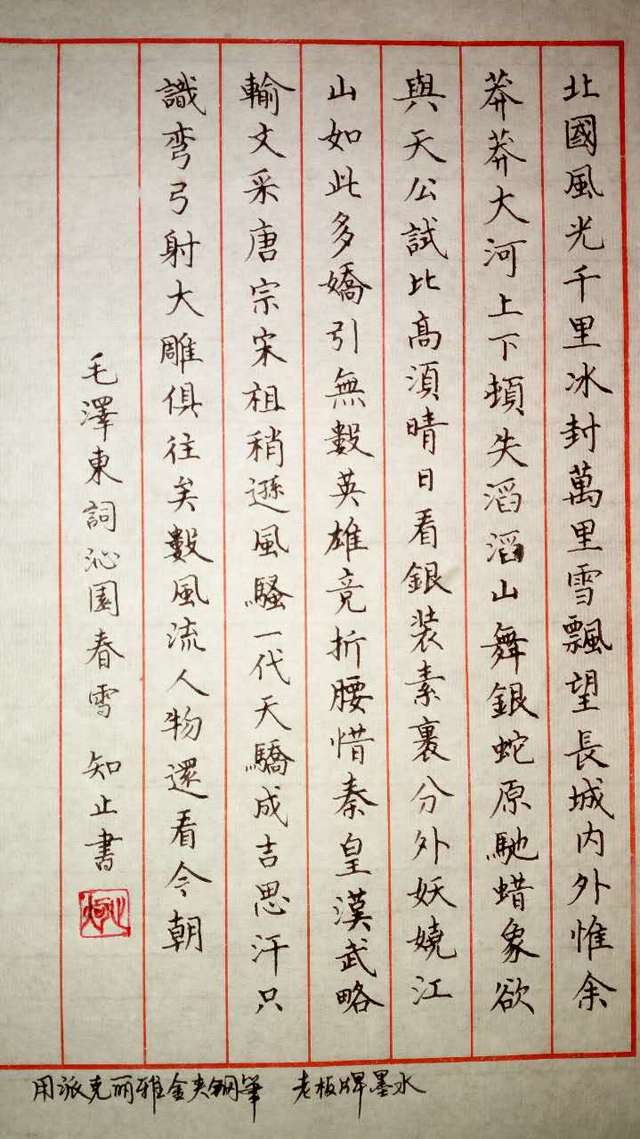 北國風光千里冰封萬里雪飄望長城內外惟余
莽莽大河上下頓失滔滔山舞銀蛇原馳蜡象欲
與天公試比高須晴日看銀装素裹分外妖嬈江
山如此多嬌引無數英雄竞折腰惜秦皇漢武略
輸文采唐宗宋祖稍遜風騷一代天驕成吉思汗只
識弯弓射大雕俱往矣數風流人物還看今朝
毛澤東詞沁園春雪 知止書
用派克丽雅金夹钢笔 老板牌墨水